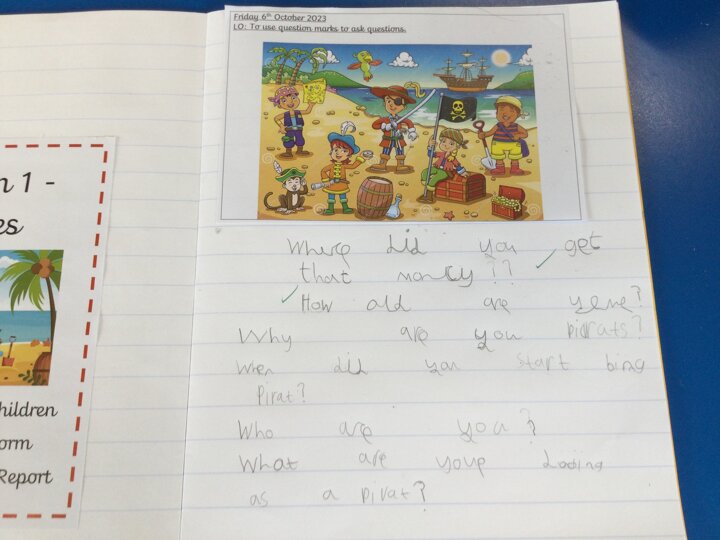 n 1 -
es
hildren
orm
Report
Friday 6th October 2023
LO: To use question marks to ask questions.
Where did you get
that money??
How old are yeue?
Why are you pidrats?
When did you start bing
Pirat?
Who are you?
What are youe dooing
as a pirat?